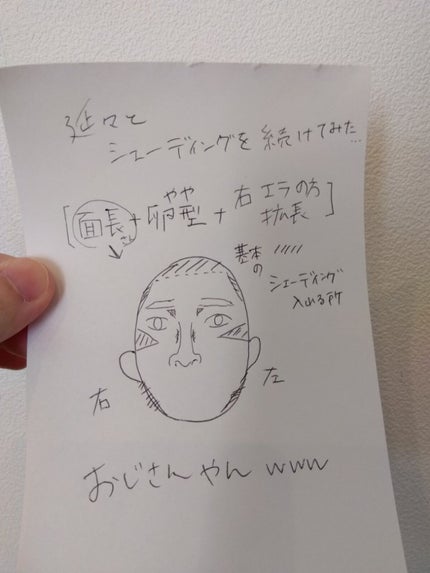 延々と
シェーディングを続けてみた…
[面長さん+やや卵型+右エラの方拡張]
基本の
シェーディング
入れる所
右
左
おじさんやんwww